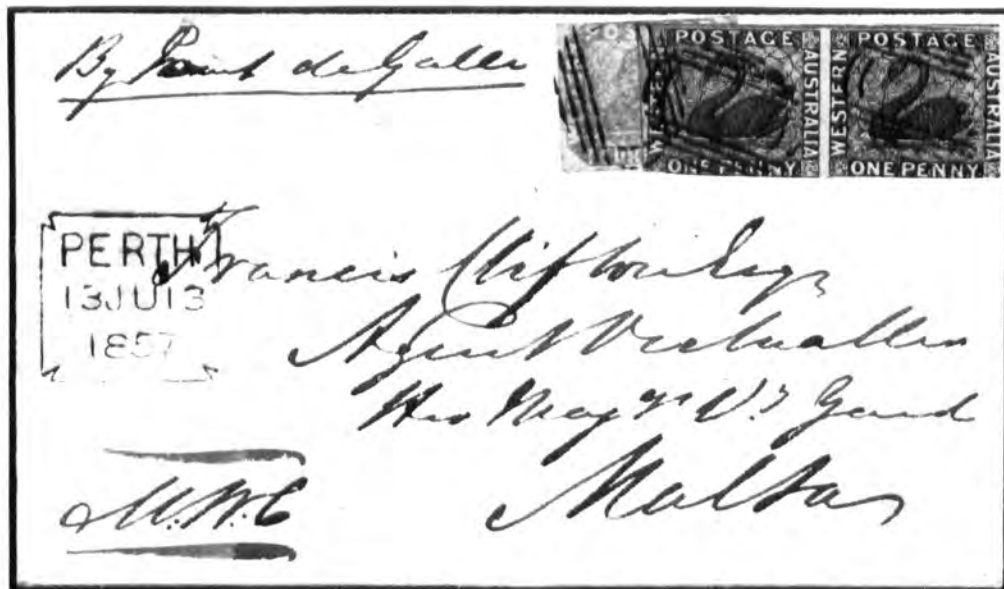 By Point de Galle
POS
POSTAGE
WESTERN
AUSTRALIA
ONE PENNY
POSTAGE
WESTERN
AUSTRALIA
ONE PENNY
PERTH
13 JU 13
1857
Francis Clifton Esqr
Agent Victualler
Her Majys V. Yard
Malta
M.W.C